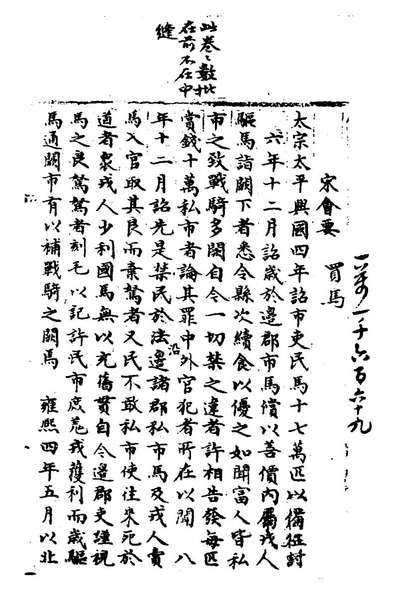 一萬一千六百六十九
宋會要
買馬
太宗太平興國四年詔市吏民馬十七萬匹以備征討
六年十二月詔歲於邊郡市馬償以善價內屬戎人
驅馬詣闕下者悉令縣次續食以優之如聞富人皆私
市之致戰騎多闕自今一切禁之違者許相告發每匹
賞錢十萬私市者論其罪中外官犯者所在以聞 八
沿
年十二月詔先是禁民於法邊諸郡私市馬及戎人賣
馬入官取其良而棄駑者又民不敢私市使往來死於
道者衆戎人少利國馬無以充舊貫自今邊郡吏謹視
馬之良駑駑者刻毛以記許民市庶羌戎獲利而歲驅
馬通闕市有以補戰騎之闕馬 雍熙四年五月以北
此卷〻數批
在前不在中
縫